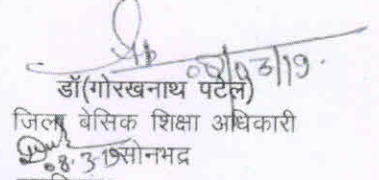 08/03/19.
डॉ(गोरखनाथ पटेल)
जिला बेसिक शिक्षा अधिकारी
08.3.19 सोनभद्र